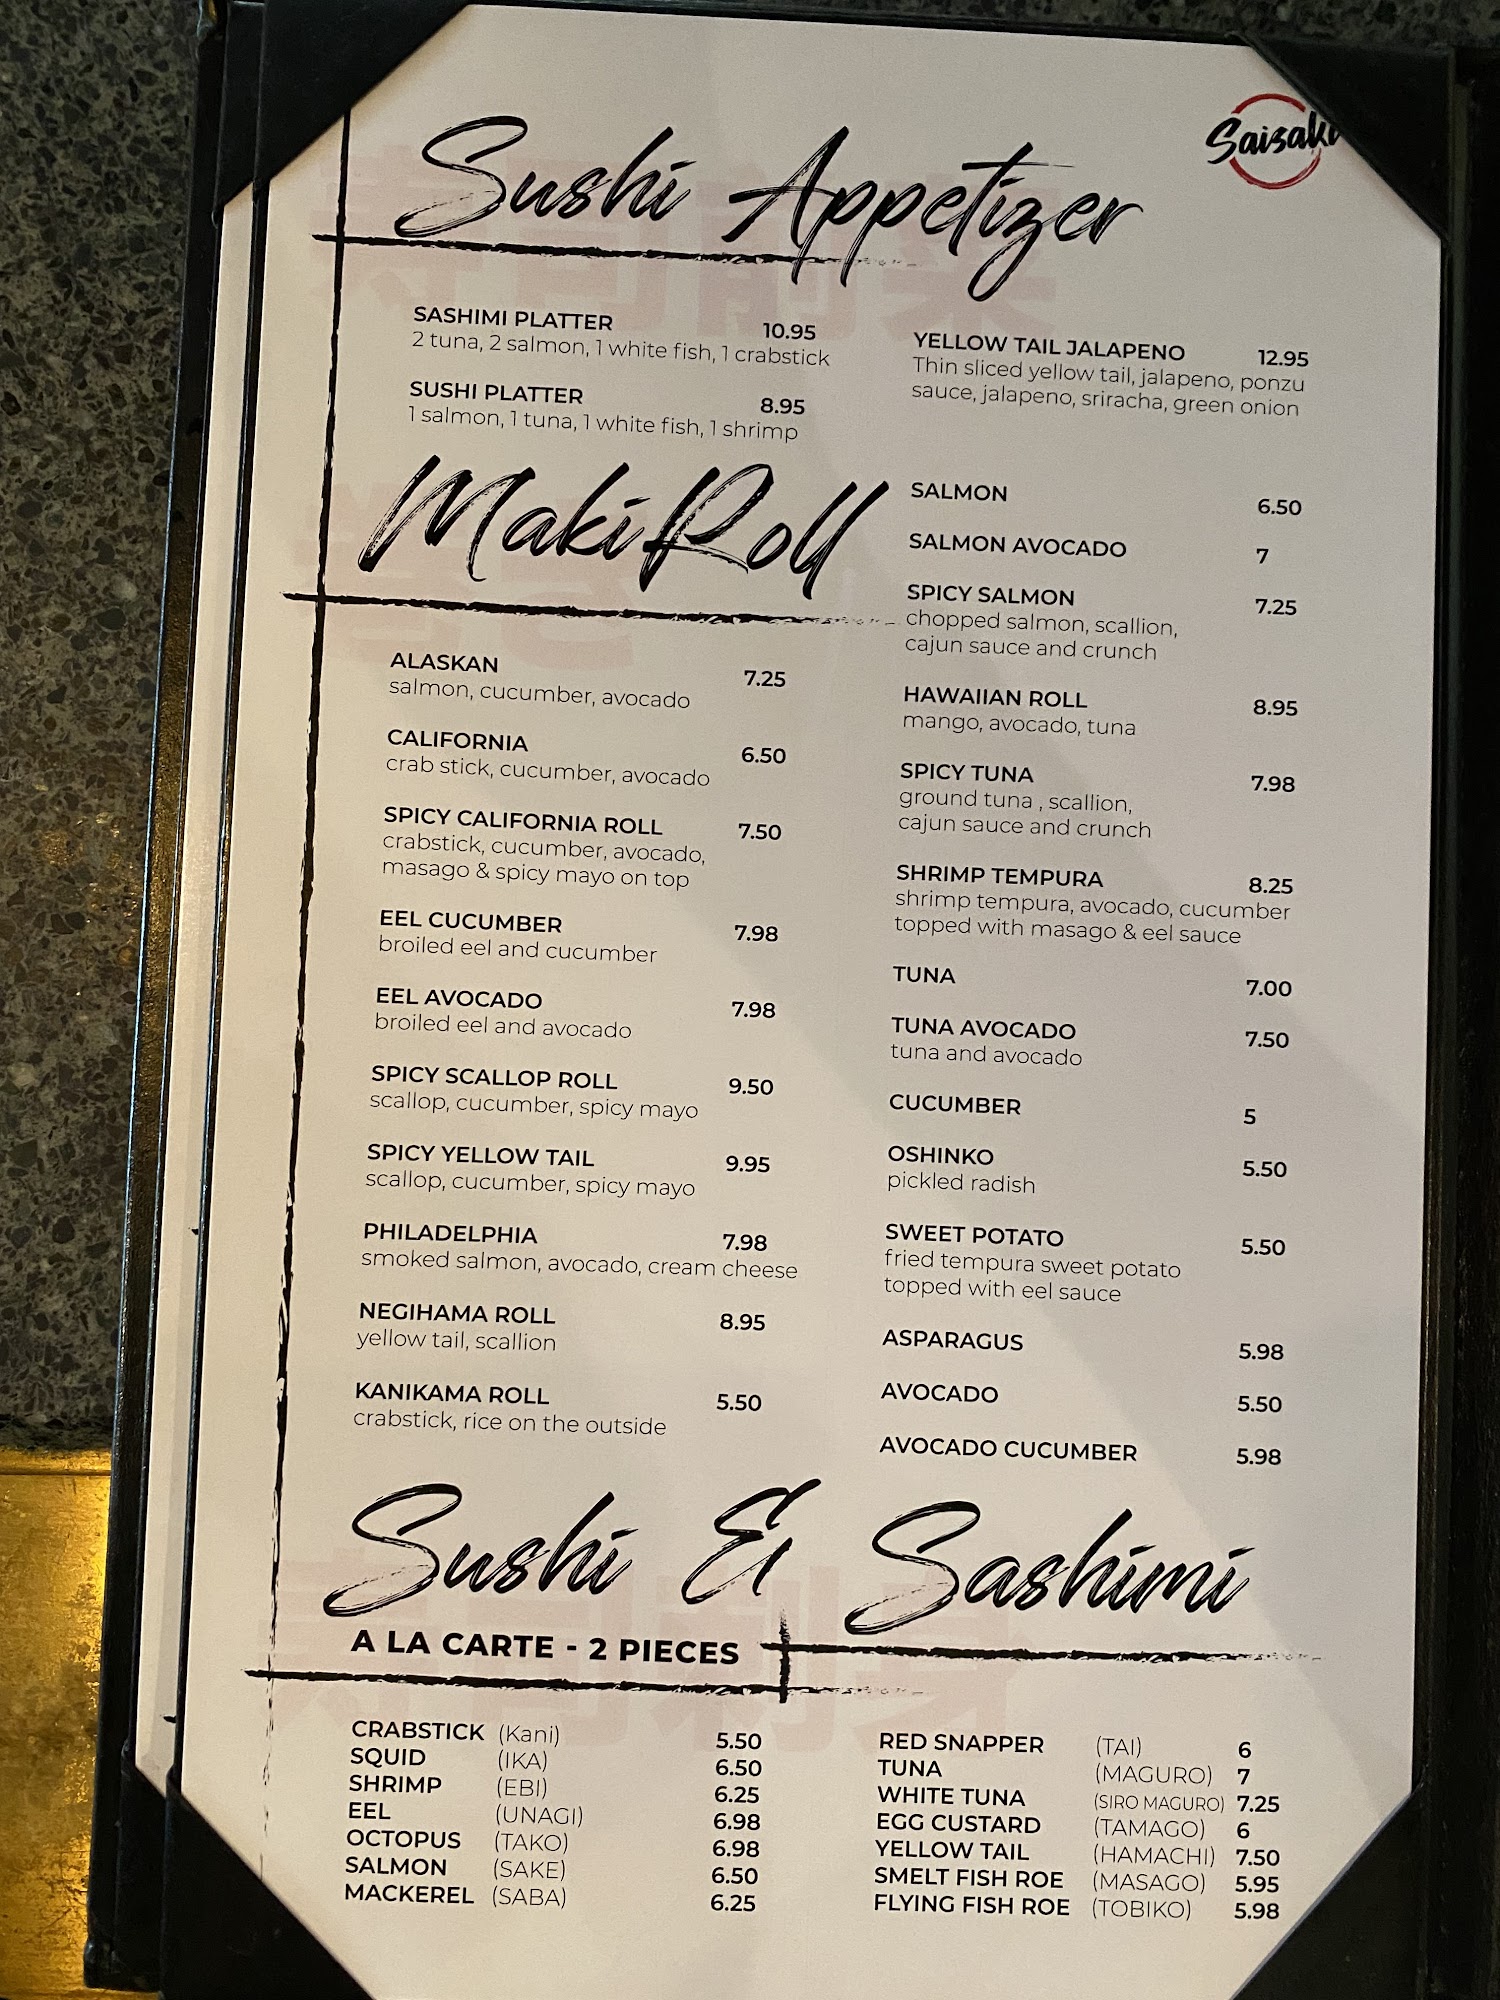 Saisaki
Sushi Appetizer
SASHIMI PLATTER 10.95
2 tuna, 2 salmon, 1 white fish, 1 crabstick
SUSHI PLATTER 8.95
1 salmon, 1 tuna, 1 white fish, 1 shrimp
YELLOW TAIL JALAPENO 12.95
Thin sliced yellow tail, jalapeno, ponzu
sauce, jalapeno, sriracha, green onion
Maki Roll
ALASKAN 7.25
salmon, cucumber, avocado
CALIFORNIA 6.50
crab stick, cucumber, avocado
SPICY CALIFORNIA ROLL 7.50
crabstick, cucumber, avocado,
masago & spicy mayo on top
EEL CUCUMBER 7.98
broiled eel and cucumber
EEL AVOCADO 7.98
broiled eel and avocado
SPICY SCALLOP ROLL 9.50
scallop, cucumber, spicy mayo
SPICY YELLOW TAIL 9.95
scallop, cucumber, spicy mayo
PHILADELPHIA 7.98
smoked salmon, avocado, cream cheese
NEGIHAMA ROLL 8.95
yellow tail, scallion
KANIKAMA ROLL 5.50
crabstick, rice on the outside
SALMON 6.50
SALMON AVOCADO 7
SPICY SALMON 7.25
chopped salmon, scallion,
cajun sauce and crunch
HAWAIIAN ROLL 8.95
mango, avocado, tuna
SPICY TUNA 7.98
ground tuna , scallion,
cajun sauce and crunch
SHRIMP TEMPURA 8.25
shrimp tempura, avocado, cucumber
topped with masago & eel sauce
TUNA 7.00
TUNA AVOCADO 7.50
tuna and avocado
CUCUMBER 5
OSHINKO 5.50
pickled radish
SWEET POTATO 5.50
fried tempura sweet potato
topped with eel sauce
ASPARAGUS 5.98
AVOCADO 5.50
AVOCADO CUCUMBER 5.98
Sushi & Sashimi
A LA CARTE - 2 PIECES
CRABSTICK (Kani) 5.50
SQUID (IKA) 6.50
SHRIMP (EBI) 6.25
EEL (UNAGI) 6.98
OCTOPUS (TAKO) 6.98
SALMON (SAKE) 6.50
MACKEREL (SABA) 6.25
RED SNAPPER (TAI) 6
TUNA (MAGURO) 7
WHITE TUNA (SIRO MAGURO) 7.25
EGG CUSTARD (TAMAGO) 6
YELLOW TAIL (HAMACHI) 7.50
SMELT FISH ROE (MASAGO) 5.95
FLYING FISH ROE (TOBIKO) 5.98